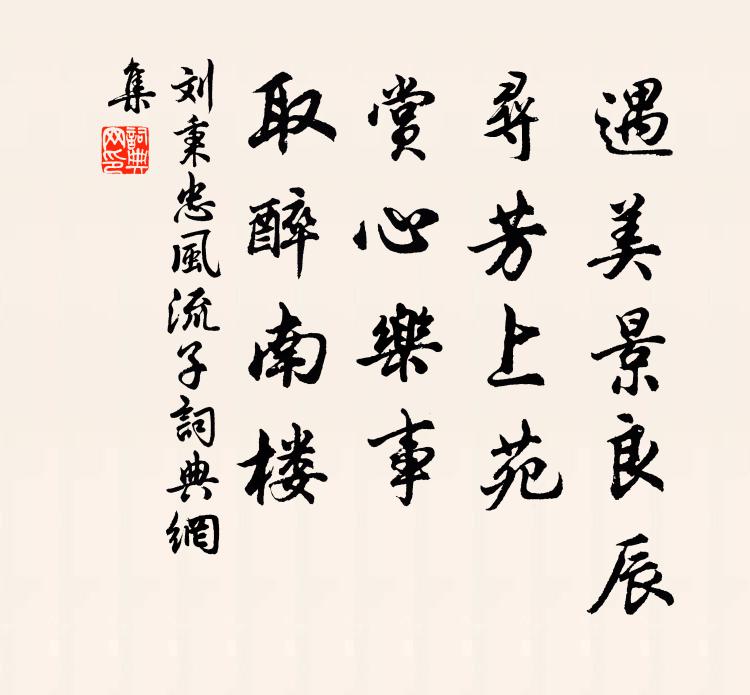 遇美景良辰
尋芳上苑
賞心樂事
取醉南楼
刘秉忠風流子詞典網
集
詞典网印